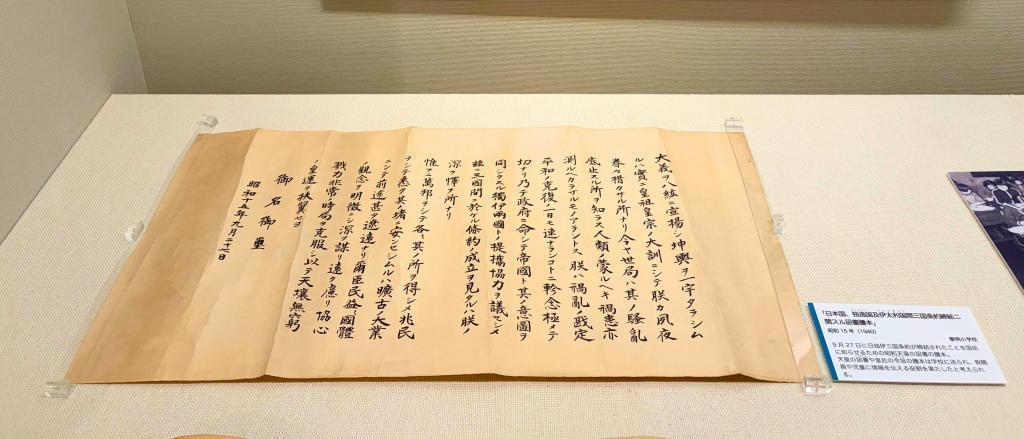 大義ヲ八紘ニ宣揚シ坤輿ヲ一宇タラシム
ルハ實ニ皇祖皇宗ノ大訓ニシテ朕カ夙夜
眷々措カサル所ナリ今ヤ世局ハ其ノ騷亂
底止スル所ヲ知ラス人類ノ蒙ルヘキ禍患亦
測ルヘカラサルモノアラントス朕ハ禍亂ノ戡定
平和ノ克復ノ一日モ速ナランコトニ軫念極メテ
切ナリ乃チ政府ニ命シテ帝國ト其ノ意圖ヲ
同シクスル獨伊兩國トノ提携協力ヲ議セシメ
茲ニ三國間ニ於ケル條約ノ成立ヲ見タルハ朕ノ
深ク懌フ所ナリ
惟フニ萬邦ヲシテ各〻其ノ所ヲ得シメ兆民
ヲシテ悉ク其ノ堵ニ安ンセシムルハ曠古ノ大業
ニシテ前途甚タ遼遠ナリ爾臣民益〻國體
ノ觀念ヲ明徴ニシ深ク謀リ遠ク慮リ協心
戮力非常ノ時局ヲ克服シ以テ天壤無窮
ノ皇運ヲ扶翼セヨ
御名御璽
昭和十五年九月二十七日
「日本国、独逸国及伊太利国間三国条約締結ニ
関スル詔書謄本」
昭和15年（1940）
小学校
9月27日に日独伊三国条約が締結されたことを国民
に知らせるための昭和天皇の詔書の謄本。
天皇の詔書や皇后の令旨の謄本は学校に送られ、教職
員や児童に情報を伝える役割を果たしたと考えられ
る。